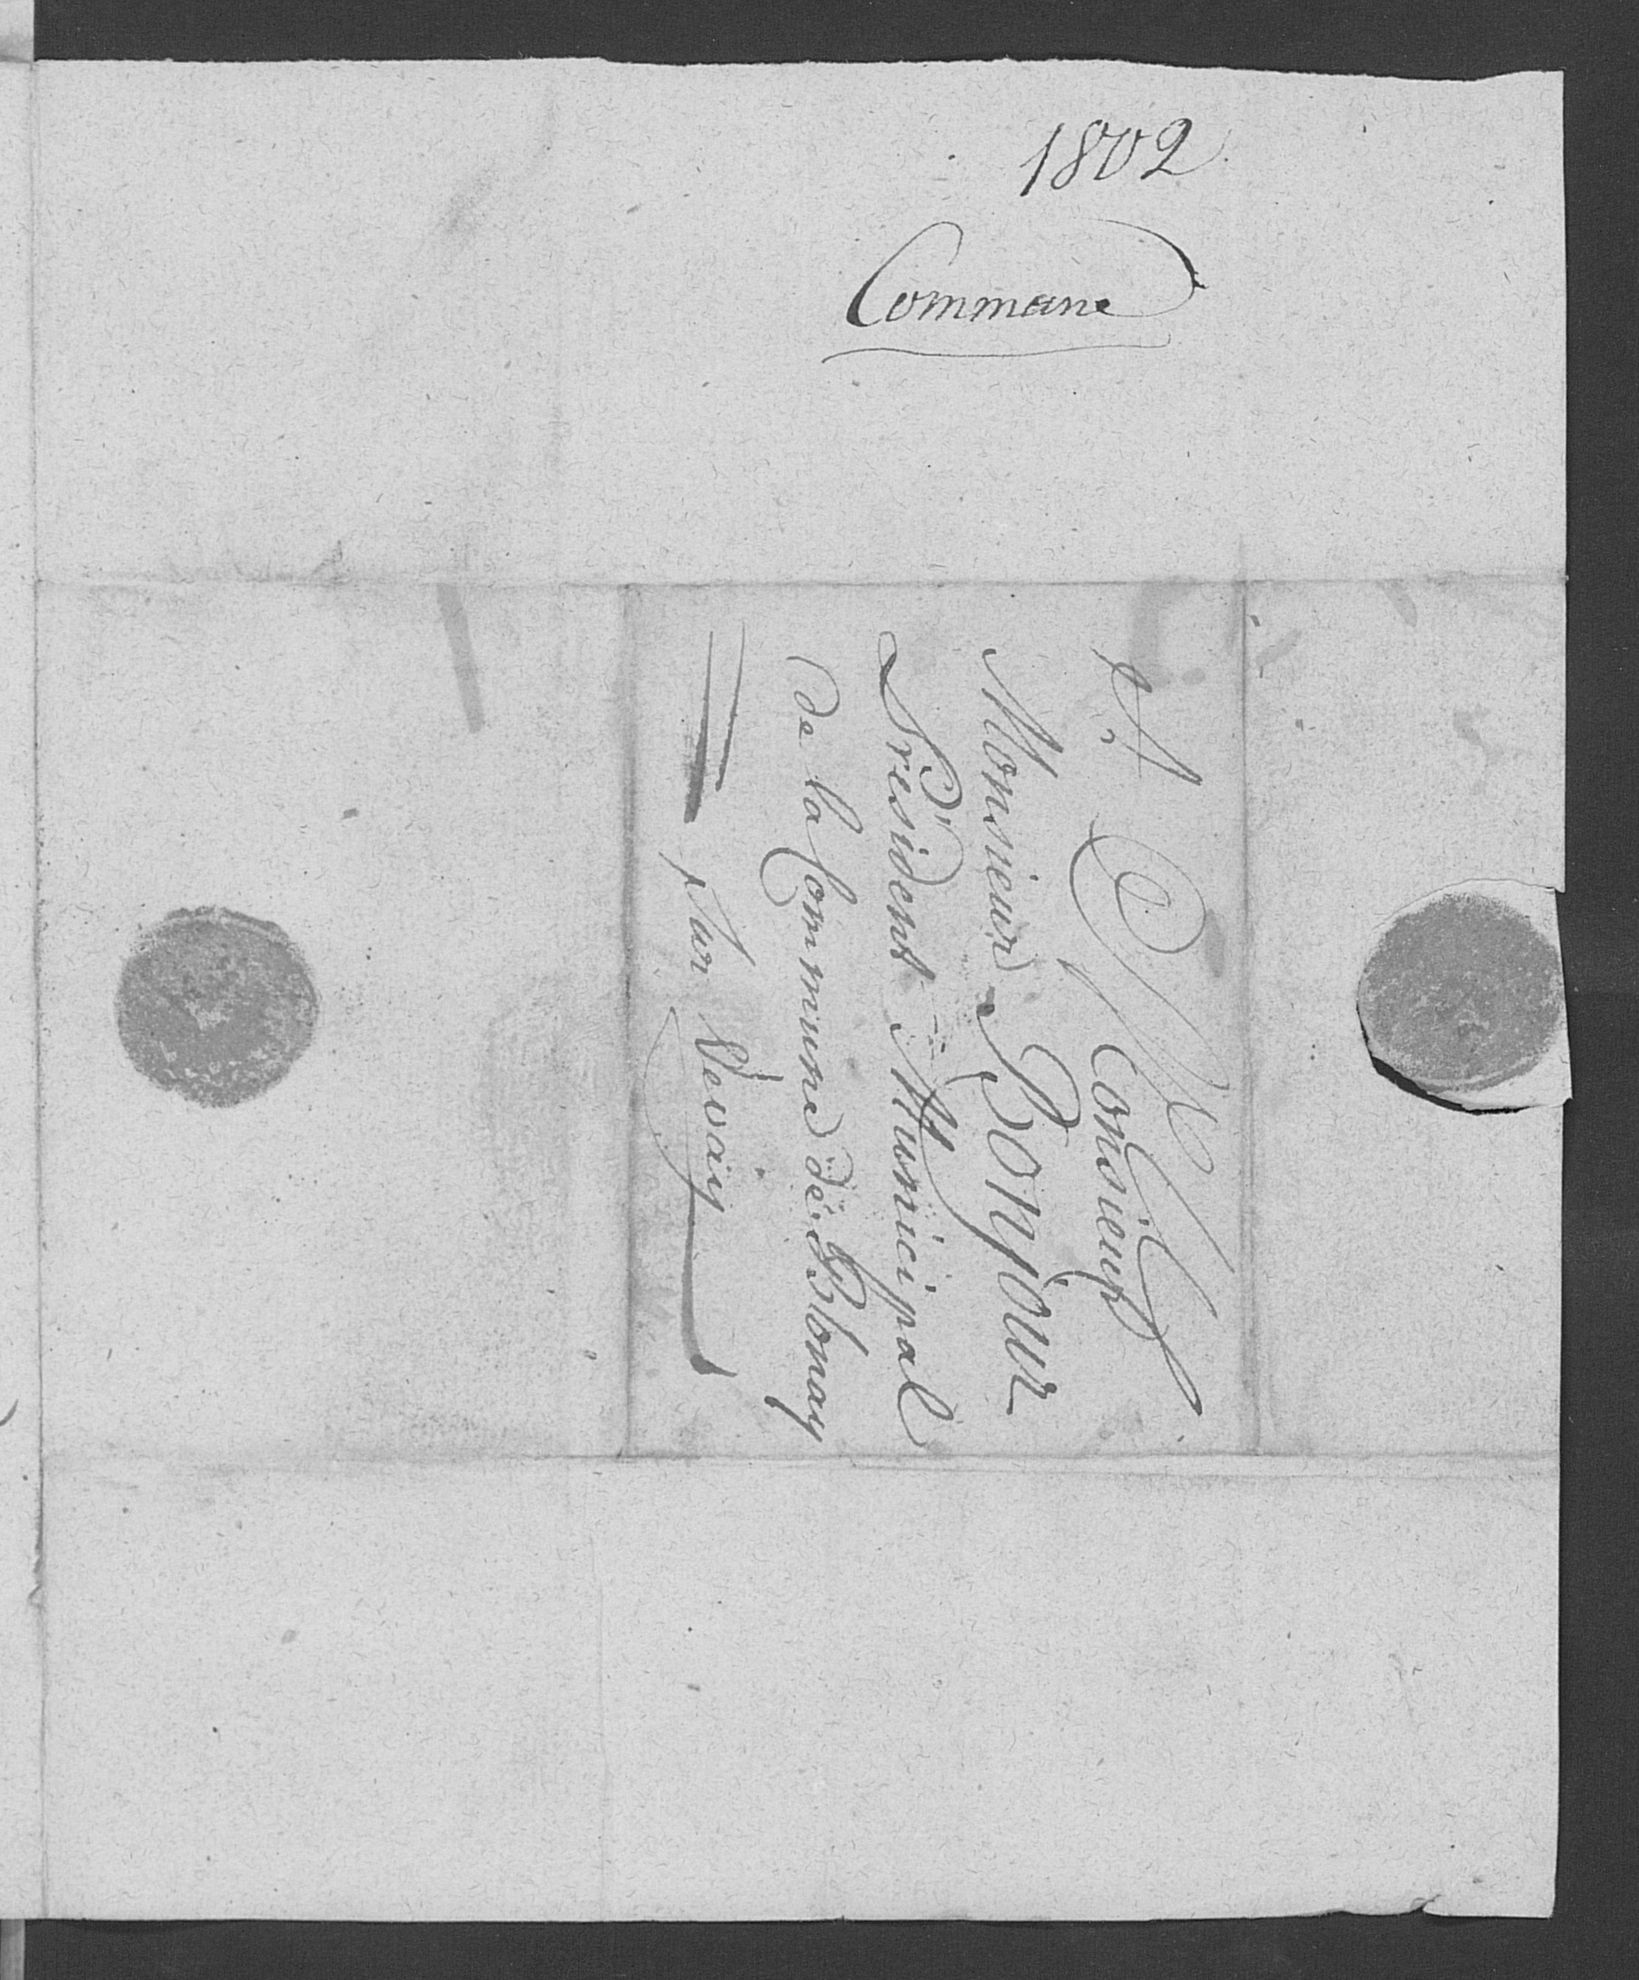 1802
Commune
A Monsieur
Monsieur Bonjour
Président Municipal
de la Commune de Blonay
sur Vevaÿ